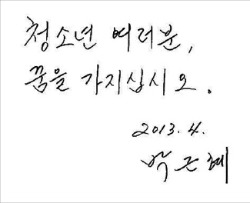 청소년 여러분,
꿈을 가지십시오.
2013. 4.
박근혜